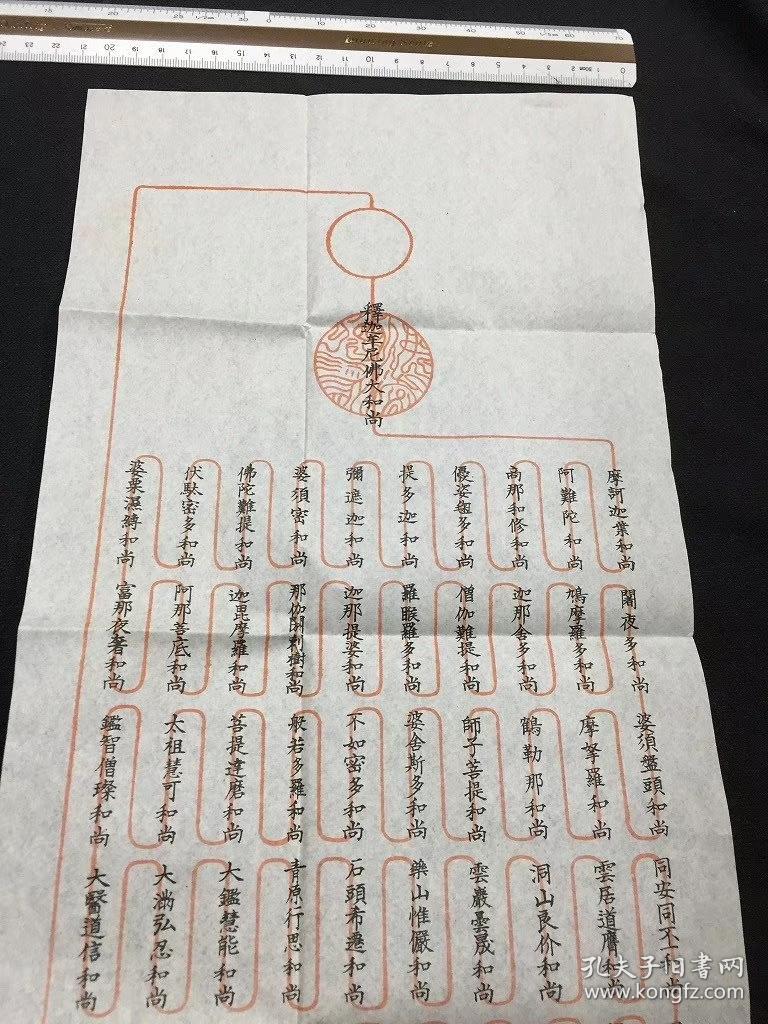 釋迦牟尼佛大和尚
摩訶迦葉和尚
阿難陀和尚
商那和修和尚
優婆毱多和尚
提多迦和尚
彌遮迦和尚
婆須密和尚
佛陀難提和尚
伏駄密多和尚
婆栗濕縛和尚
富那夜奢和尚
阿那菩底和尚
迦毘摩羅和尚
那伽閼剌樹和尚
迦那提婆和尚
羅睺羅多和尚
僧伽難提和尚
迦那舍多和尚
鳩摩羅多和尚
闍夜多和尚
婆須盤頭和尚
摩拏羅和尚
鶴勒那和尚
師子菩提和尚
婆舍斯多和尚
不如密多和尚
般若多羅和尚
菩提達磨和尚
太祖慧可和尚
鑑智僧璨和尚
大醫道信和尚
大滿弘忍和尚
大鑑慧能和尚
青原行思和尚
石頭希遷和尚
藥山惟儼和尚
雲巖曇晟和尚
洞山良价和尚
雲居道膺和尚
同安同丕和尚
孔夫子旧书网
www.kongfz.com